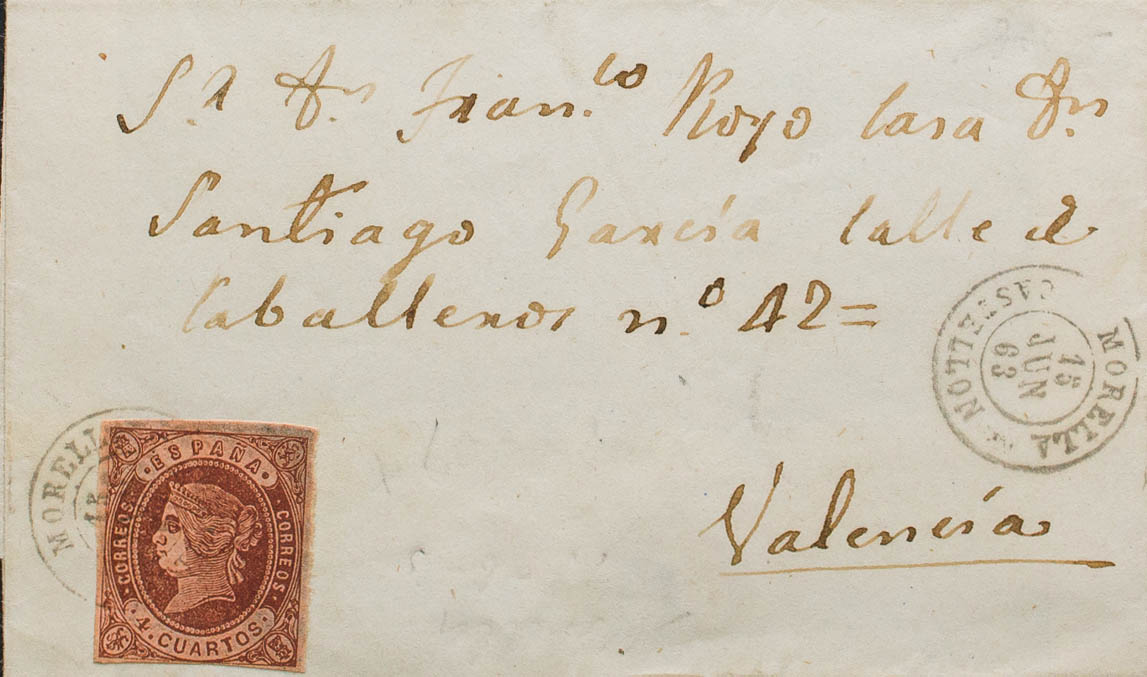 S.r Dn. Fran.co Royo Casa Dn.
Santiago García Calle de
Caballeros n.º 42=
Valencia
MORELLA CASTELLON
15
JUN
63
MORELL
15
ESPAÑA
CORREOS
CORREOS
4. CUARTOS.